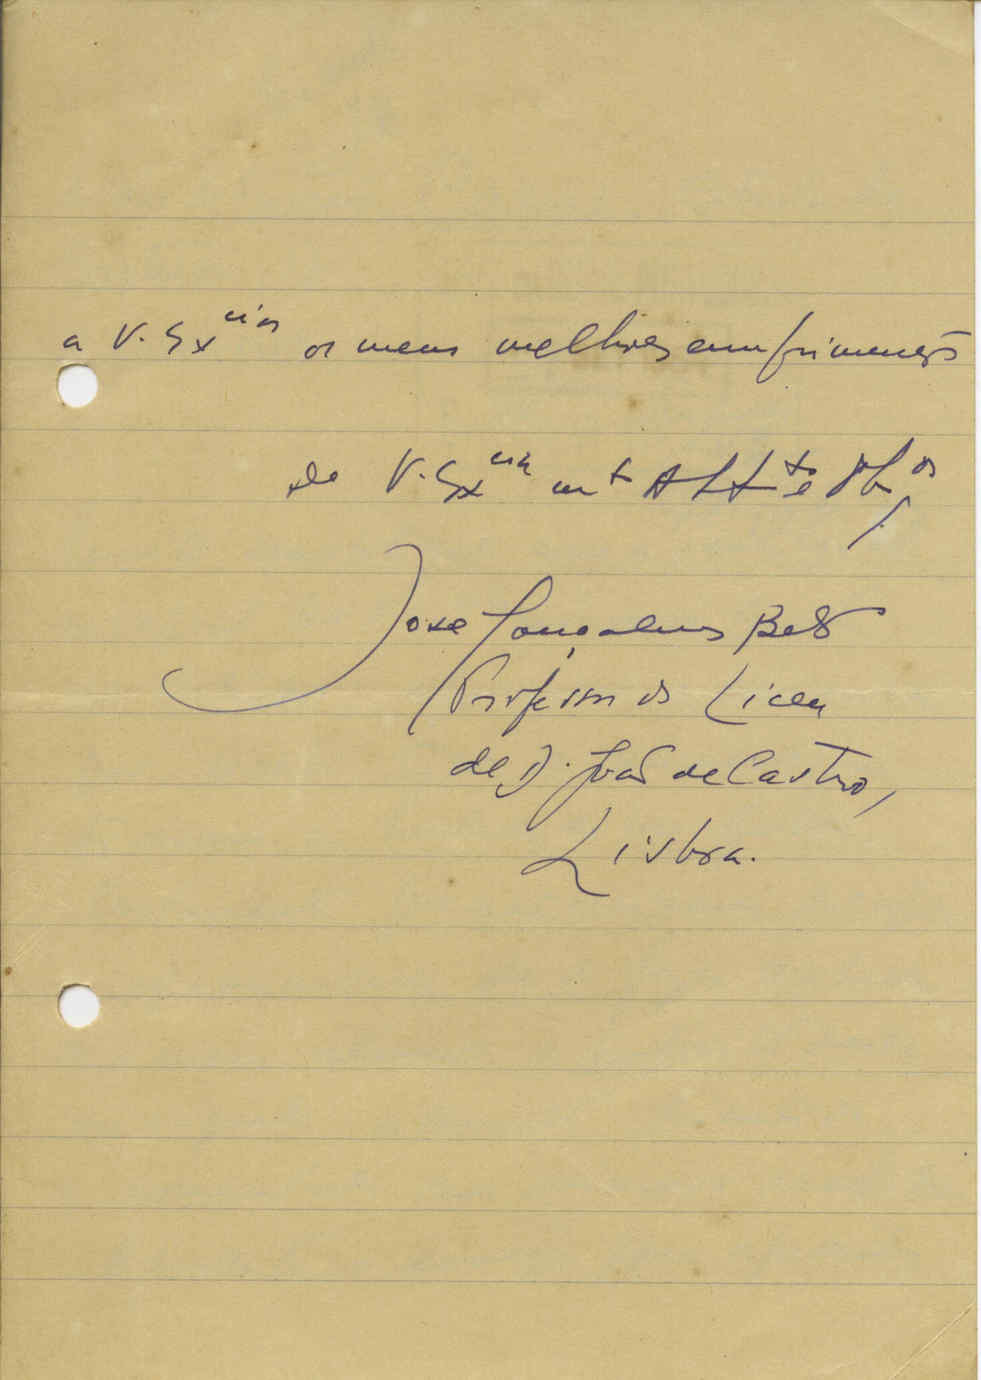 a V. Ex^cias os meus melhores cumprimentos
de V. Ex^cia m^t Att^te
José Gonçalves
Professor do Liceu
de D. João de Castro,
Lisboa.